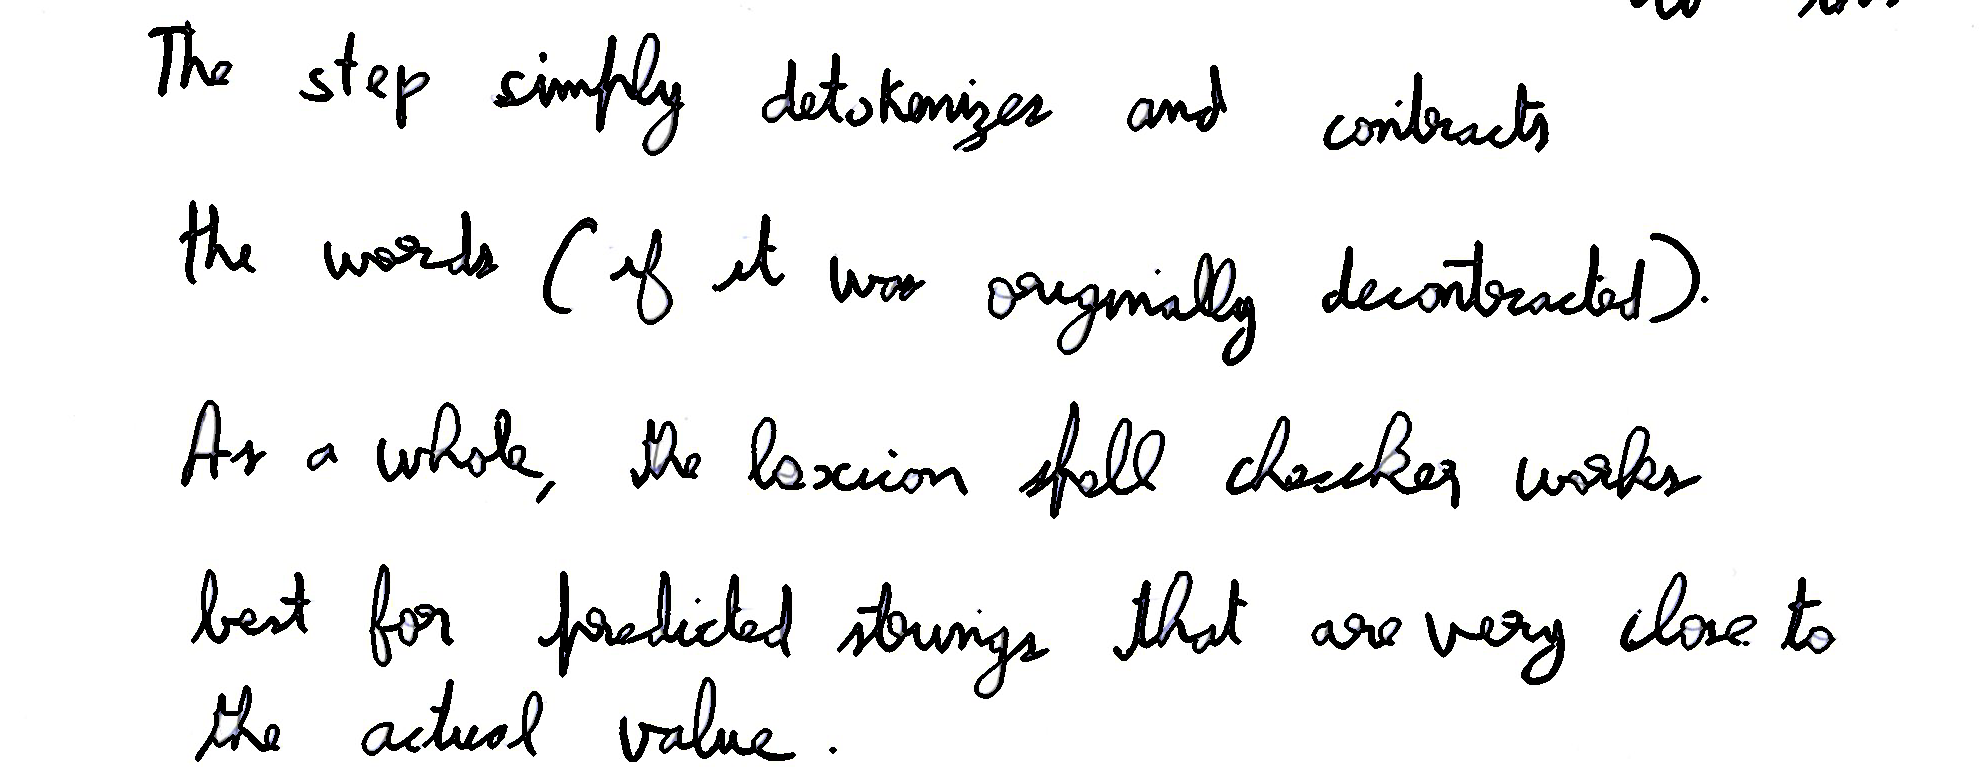 The step simply detokenizes and contracts
the words (if it was originally decontracted).
As a whole, the lexicon spell checker works
best for predicted strings that are very close to
the actual value.